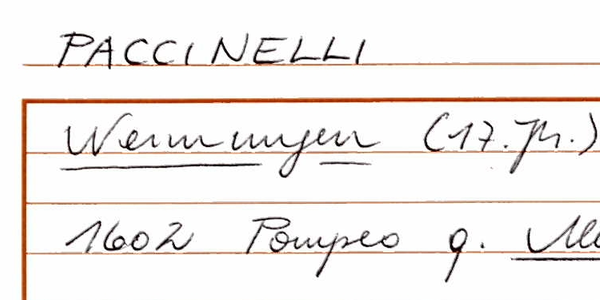 PACCINELLI
Nennungen (17. Jh.)
1602 Pompeo q.